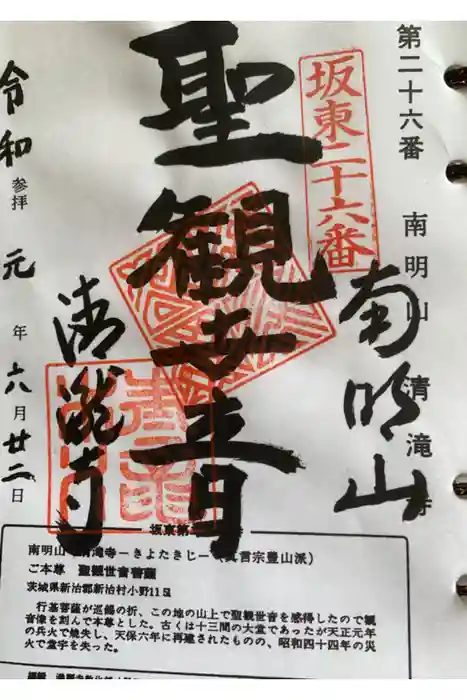 第二十六番 南明山 清滝寺
坂東二十六番
南明山
聖観世音
清瀧寺
令和 参拝 元年六月廿二日
坂東第二
南明山 清滝寺ーきよたきじー(真言宗豊山派)
ご本尊 聖観世音菩薩
茨城県新治郡新治村小野11
行基菩薩が巡錫の折、この地の山上で聖観世音を感得したので観
音像を刻んで本尊とした。古くは十三間の大堂であったが天正元年
の兵火で焼失し、天保六年に再建されたものの、昭和四十四年の災
火で堂宇を失った。